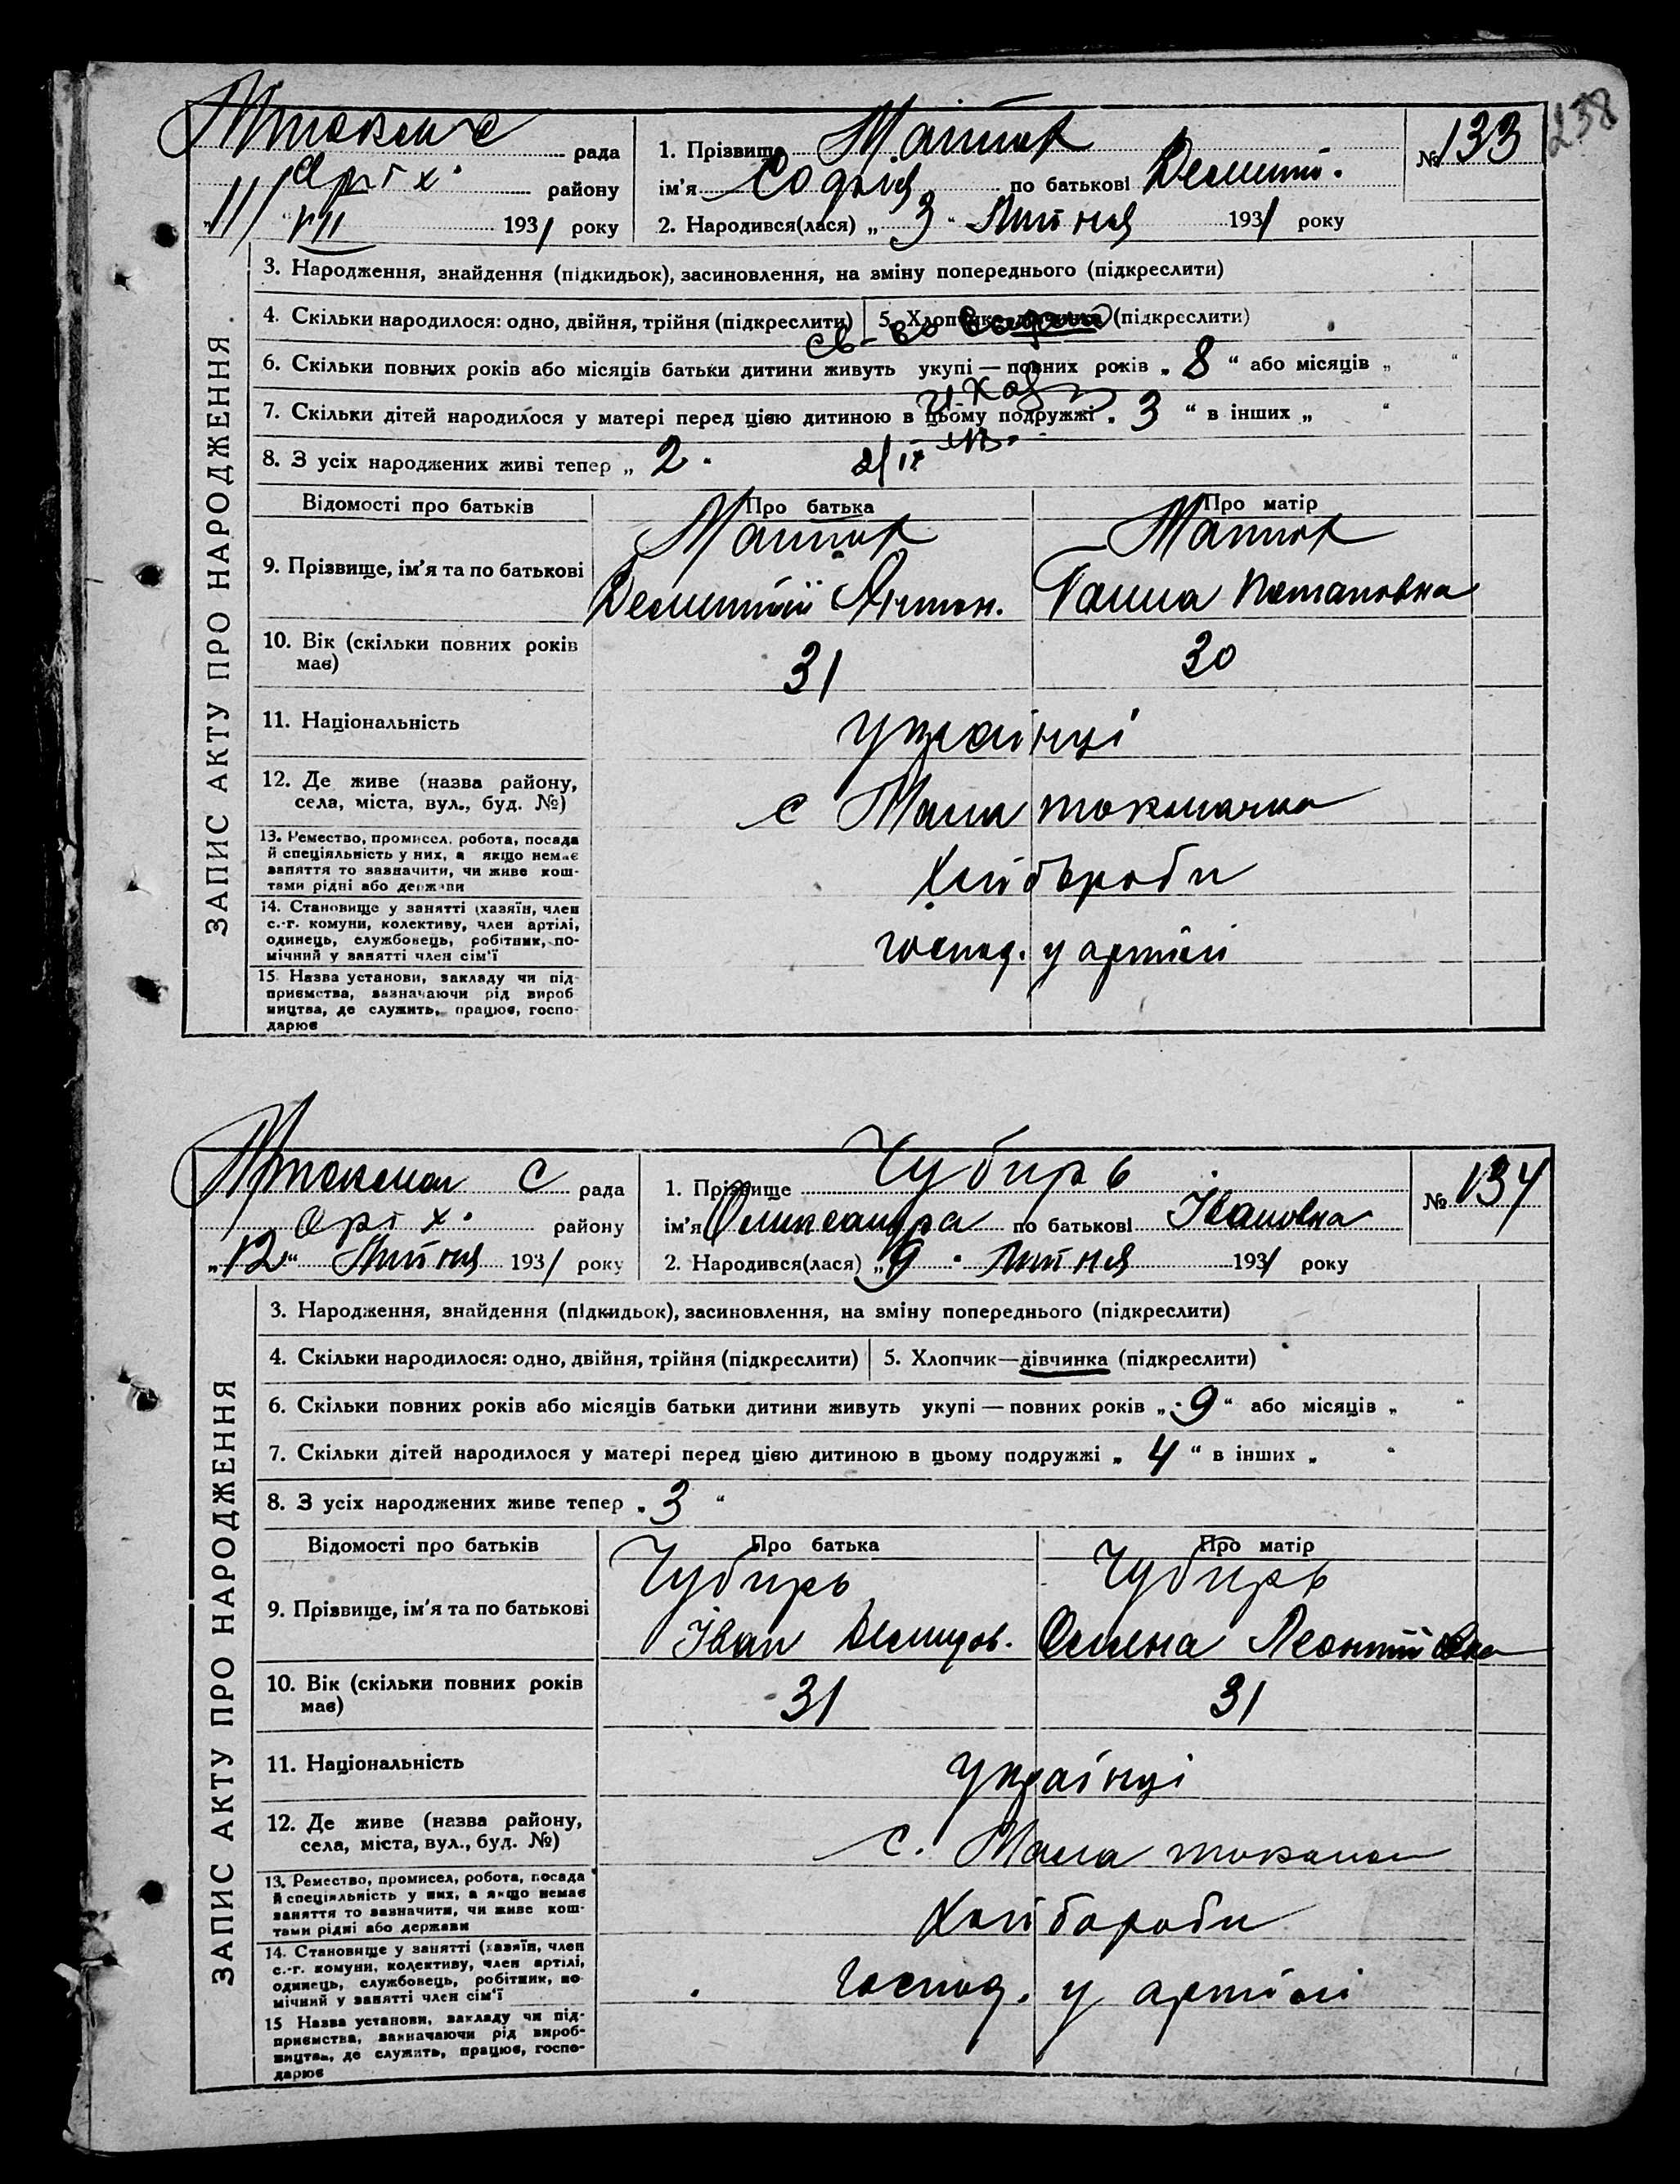 238
Мтокм с рада
Оріх. району
"11/VII 1931 року
1. Прізвище Матюк
ім'я Софья по батькові Дементі.
2. Народився(лася) „3" Липня 1931 року
№ 133
ЗАПИС АКТУ ПРО НАРОДЖЕННЯ.
3. Народження, знайдення (підкидьок), засиновлення, на зміну попереднього (підкреслити)
4. Скільки народилося: одно, двійня, трійня (підкреслити) 5. Хлопчик—дівчинка (підкреслити)
св-во
6. Скільки повних років або місяців батьки дитини живуть укупі — повних років „8" або місяців „ "
7. Скільки дітей народилося у матері перед цією дитиною в цьому подружжі „3" в інших „ "
8. З усіх народжених живі тепер „2" 2/IX
Відомості про батьків Про батька Про матір
9. Прізвище, ім'я та по батькові
Матюк Матюк
Дементій Антон. Ганна Потаповна
10. Вік (скільки повних років має) 31 30
11. Національність українці
12. Де живе (назва району, села, міста, вул., буд. №) с Мала токмачка
13. Ремество, промисел, робота, посада й спеціяльність у них, а якщо немає заняття то зазначити, чи живе коштами рідні або держави
Хлібороби
14. Становище у занятті (хазяїн, член с.-г. комуни, колективу, член артілі, одинець, службовець, робітник, помічний у занятті член сім'ї
господ. у артілі
15. Назва установи, закладу чи підприємства, зазначаючи рід виробництва, де служить, працює, господарює
Мтокмал С рада
Оріх. району
„12" Липня 1931 року
1. Прізвище Чубирь
ім'я Олександра по батькові Івановна
2. Народився(лася) „9" Липня 1931 року
№ 134
ЗАПИС АКТУ ПРО НАРОДЖЕННЯ
3. Народження, знайдення (підкидьок), засиновлення, на зміну попереднього (підкреслити)
4. Скільки народилося: одно, двійня, трійня (підкреслити) 5. Хлопчик—дівчинка (підкреслити)
6. Скільки повних років або місяців батьки дитини живуть укупі — повних років „9" або місяців „ "
7. Скільки дітей народилося у матері перед цією дитиною в цьому подружжі „4" в інших „ "
8. З усіх народжених живе тепер „3"
Відомості про батьків Про батька Про матір
9. Прізвище, ім'я та по батькові
Чубирь Чубирь
Іван Демидов. Олена Леонтіївна
10. Вік (скільки повних років має) 31 31
11. Національність українці
12. Де живе (назва району, села, міста, вул., буд. №) с. Мала
13. Ремество, промисел, робота, посада й спеціяльність у них, а якщо немає заняття то зазначити, чи живе коштами рідні або держави
Хлібороби
14. Становище у занятті (хазяїн, член с.-г. комуни, колективу, член артілі, одинець, службовець, робітник, помічний у занятті член сім'ї
Господ. у артілі
15 Назва установи, закладу чи підприємства, зазначаючи рід виробництва, де служить, працює, господарює